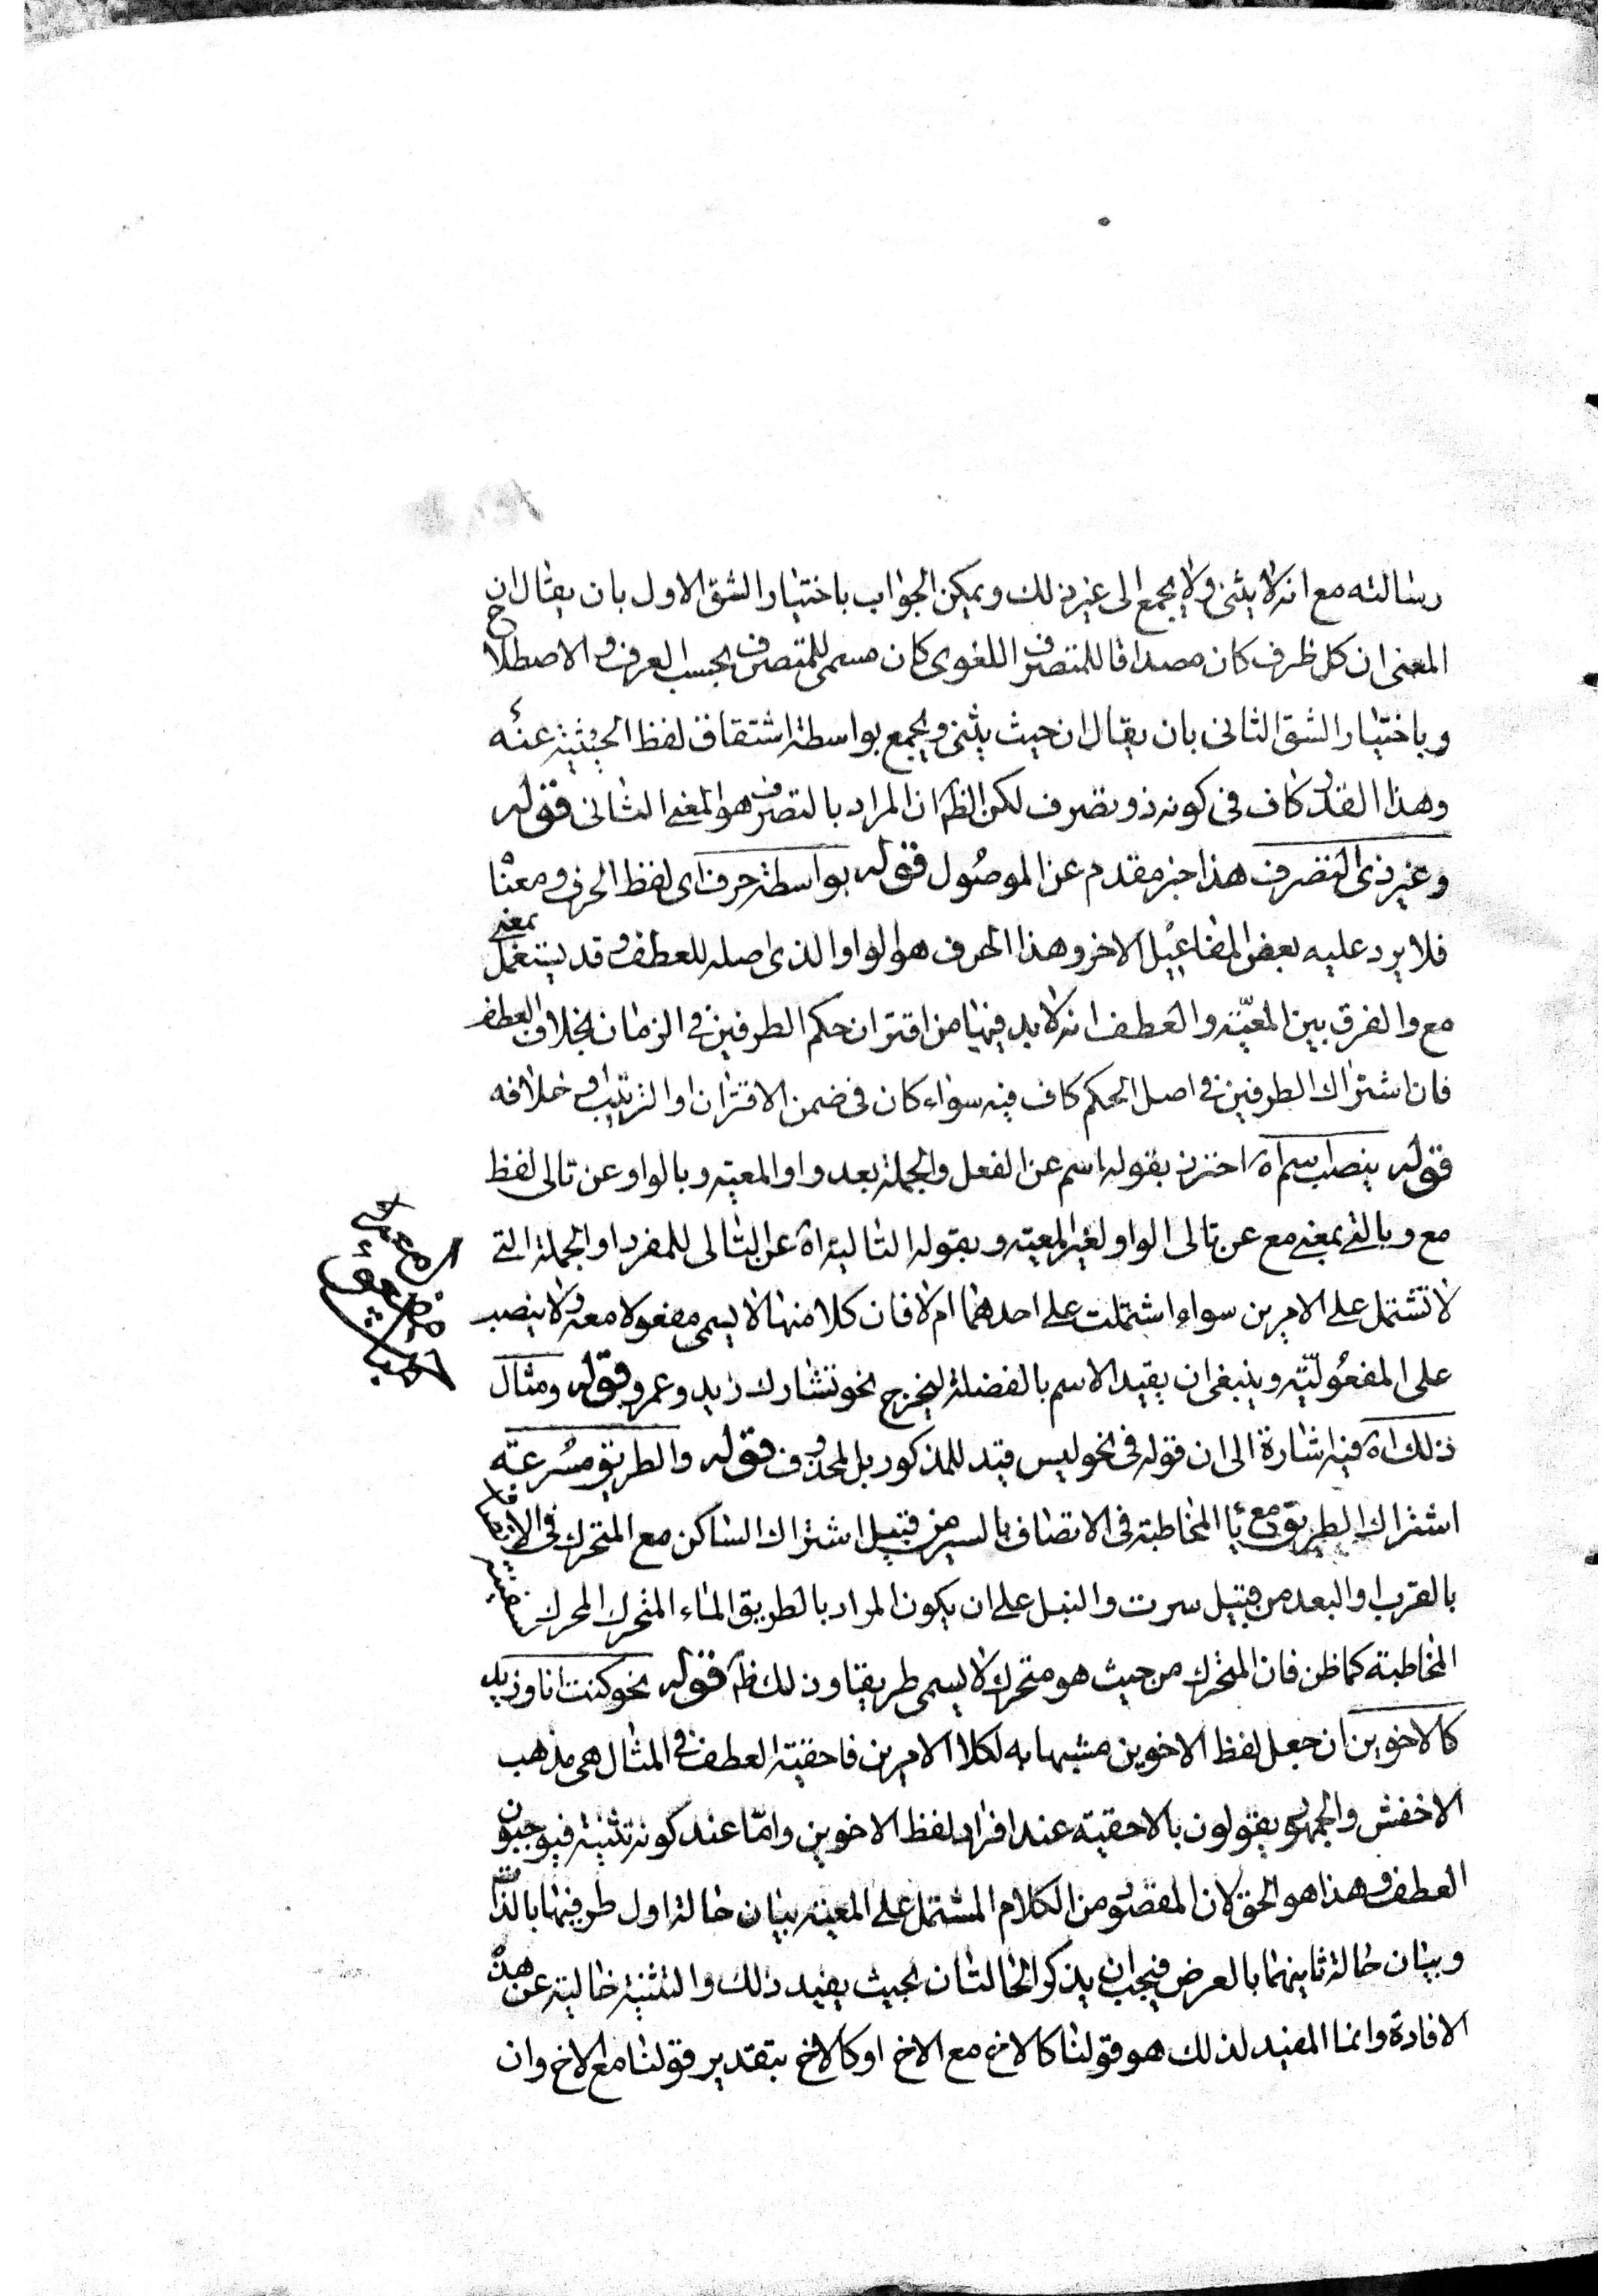 رسالته مع انه لا يثنى ولا يجمع الى غير ذلك ويمكن الجواب باختيار الشق الاول بان يقال ان
المعنى ان كل ظرف كان مصداقا للمتصرف اللغوى كان مسمى للمتصرف بحسب العرف والاصطلاح
وباختيار الشق الثانى بان يقال ان حيث يثنى ويجمع بواسطة اشتقاق لفظ الحيثية عنه
وهذا القدر كاف فى كونه ذو تصرف لكن الظ ان المراد بالتصرف هو المعنى الثانى قوله
وغير ذى التصرف هذا خبر مقدم عن الموصول قوله بواسطة حرف اى لفظ الحرف ومعناه
فلا يرد عليه بعض المفاعيل الاخر وهذا الحرف هو الواو الذى اصله للعطف وقد يستعمل بمعنى
مع والفرق بين المعية والعطف انه لا بد فيها من اقتران حكم الطرفين فى الزمان بخلاف العطف
فان اشتراك الطرفين فى اصل الحكم كاف فيه سواء كان فى ضمن الاقتران او الترتيب او خلافه
قوله ينصب اسم اه احترز بقوله اسم عن الفعل والجملة بعد واو المعية وبالواو عن تالى لفظ
مع وبالتى بمعنى مع عن تالى الواو لغير المعية وبقوله التالية اه عن التالى للمفرد او الجملة التى
لا تشتمل على الامرين سواء اشتملت على احدهما ام لا فان كلا منها لا يسمى مفعولا معه ولا ينصب
على المفعولية وينبغى ان يقيد الاسم بالفضلة ليخرج نحو تشارك زيد وعمرو قوله ومثال
ذلك اه فيه اشارة الى ان قوله فى نحو ليس قيد للمذكور بل للمحذوف قوله والطريق مسرعة
اشتراك الطريق مع يا المخاطبة فى الاتصاف بالسير من قبيل اشتراك الساكن مع المتحرك فى الاتصاف
بالقرب او البعد من قبيل سرت والنيل على ان يكون المراد بالطريق الماء المتحرك المحرك
المخاطبة كما ظن فان المتحرك من حيث هو متحرك لا يسمى طريقا وذلك ظ قوله نحو كنت انا وزيد
كالاخوين ان جعل لفظ الاخوين مشبها به لكلا الامرين فاحقية العطف فى المثال هى مذهب
الاخفش والجمهور يقولون بالاحقية عند افراد لفظ الاخوين واما عند كونه تثنية فيوجبون
العطف وهذا هو الحق لان المقصود من الكلام المشتمل على المعية بيان حالة اول طرفيها بالذات
وبيان حالة ثانيهما بالعرض فيجب ان يذكر الحالتان بحيث يفيد ذلك والتثنية خالية عن هذه
الافادة وانما المفيد لذلك هو قولنا كالاخ مع الاخ او كالاخ بتقدير قولنا مع الاخ وان